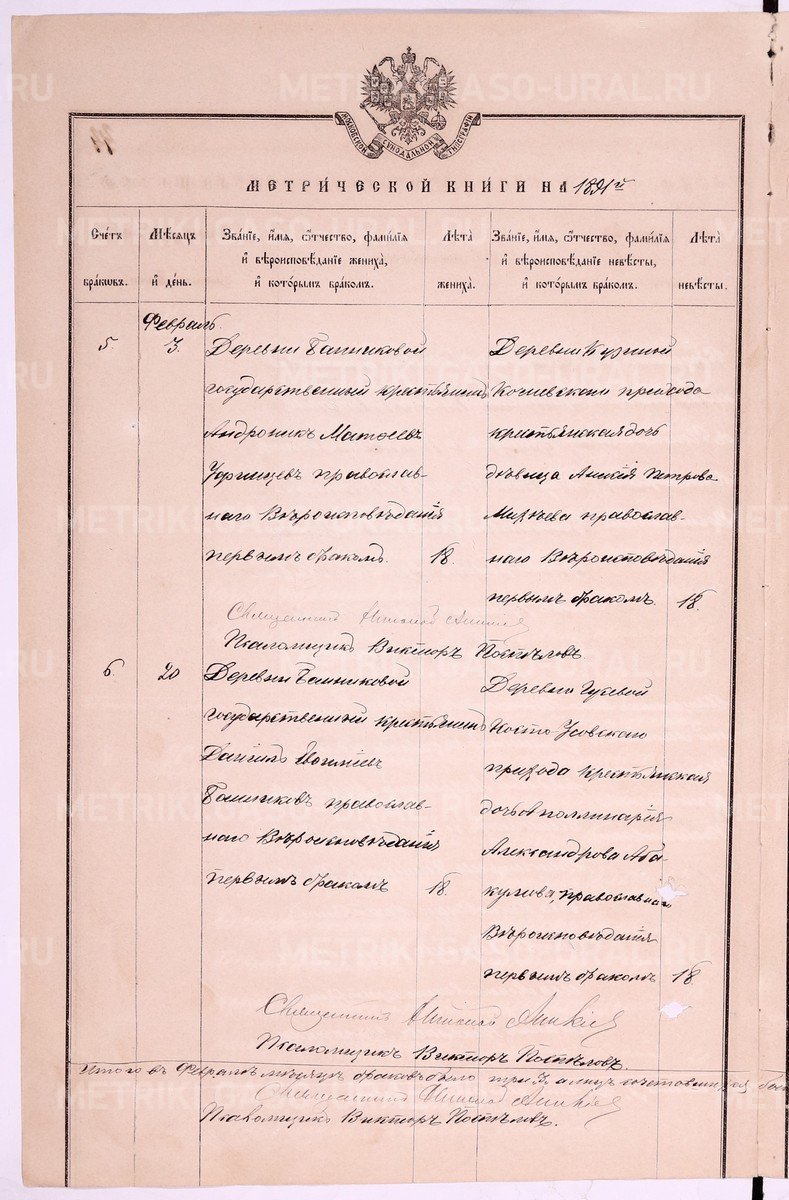 МОСКОВСКОЙ СѴНОДАЛЬНОЙ ТИПОГРАФІИ
МЕТРИ́ЧЕСКОЙ КНИ́ГИ НА 1891й
Сче́тъ бра́ковъ.
Мѣ́сяцъ и҆ де́нь.
Зва́ніе, и҆́мя, ѻ҆́тчество, фами́лія и҆ вѣроисповѣ́даніе жениха̀, и҆ кото́рымъ бра́комъ.
Лѣ́та жениха̀.
Зва́ніе, и҆́мя, ѻ҆́тчество, фами́лія и҆ вѣроисповѣ́даніе невѣ́сты, и҆ кото́рымъ бра́комъ.
Лѣ́та невѣ́сты.
Февраль.
5
3.
Деревни Банниковой
государственный крестьянинъ
Андроникъ Матѳеевъ
православ-
наго Вѣроисповѣданія
первымъ бракомъ. 18.
Деревни
прихода
крестьянская дочь
дѣвица Петрова
православ-
наго Вѣроисповѣданія
первымъ бракомъ. 18.
Священникъ Николай
Псаломщикъ Викторъ Поспѣловъ.
6.
20
Деревни Банниковой
государственный крестьянинъ
Даніилъ
Банниковъ православ-
наго Вѣроисповѣданія
первымъ бракомъ 18.
Деревни Гусевой
прихода крестьянская
дочь Аполлинарія
Александрова Аба-
кумова, православнаго
Вѣроисповѣданія
первымъ бракомъ 18
Священникъ Николай
Псаломщикъ Викторъ Поспѣловъ.
Итого въ Февралѣ мѣсяцѣ браковъ было три 3, а лицъ сочетавшихся
Священникъ Николай
Псаломщикъ Викторъ Поспѣловъ.